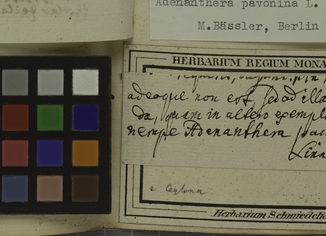 Adenanthera pavonina L.
M.Bässler, Berlin
HERBARIUM REGIUM MONA
adeoque non est, sed ad illa
da, quam in altero exempl
nempe Adenantherm pav
Linn
e Ceylona
Herbarium Schmiedelia